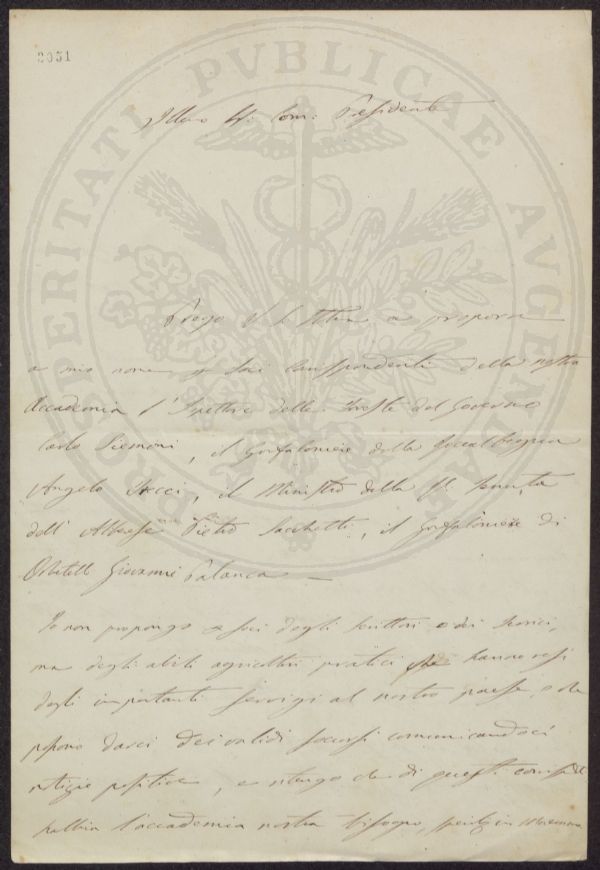 2051
PROSPERITATI PVBLICAE AVGENDAE
Illmo Sig. Com: Presidente
Prego V. S. Illma a proporre
a mio nome p. soci Corrispondenti della nostra
Accademia l'Ispettore delle Foreste del Governo
Carlo Siemoni, il Gonfaloniere della Roccalbegna
Angelo, il Ministro della R. Tenuta
dell'Alberese Pietro Sacchetti, il Gonfaloniere di
Orbetello Giovanni Palanca —
Io non propongo a soci degli scrittori o dei teorici,
ma degli abili agricoltori pratici che hanno resi
degli importanti servigi al nostro paese, e che
possono darci dei validi soccorsi comunicandoci
notizie positive, e ritengo che di questi
habbia l'accademia nostra bisogno, in Maremma